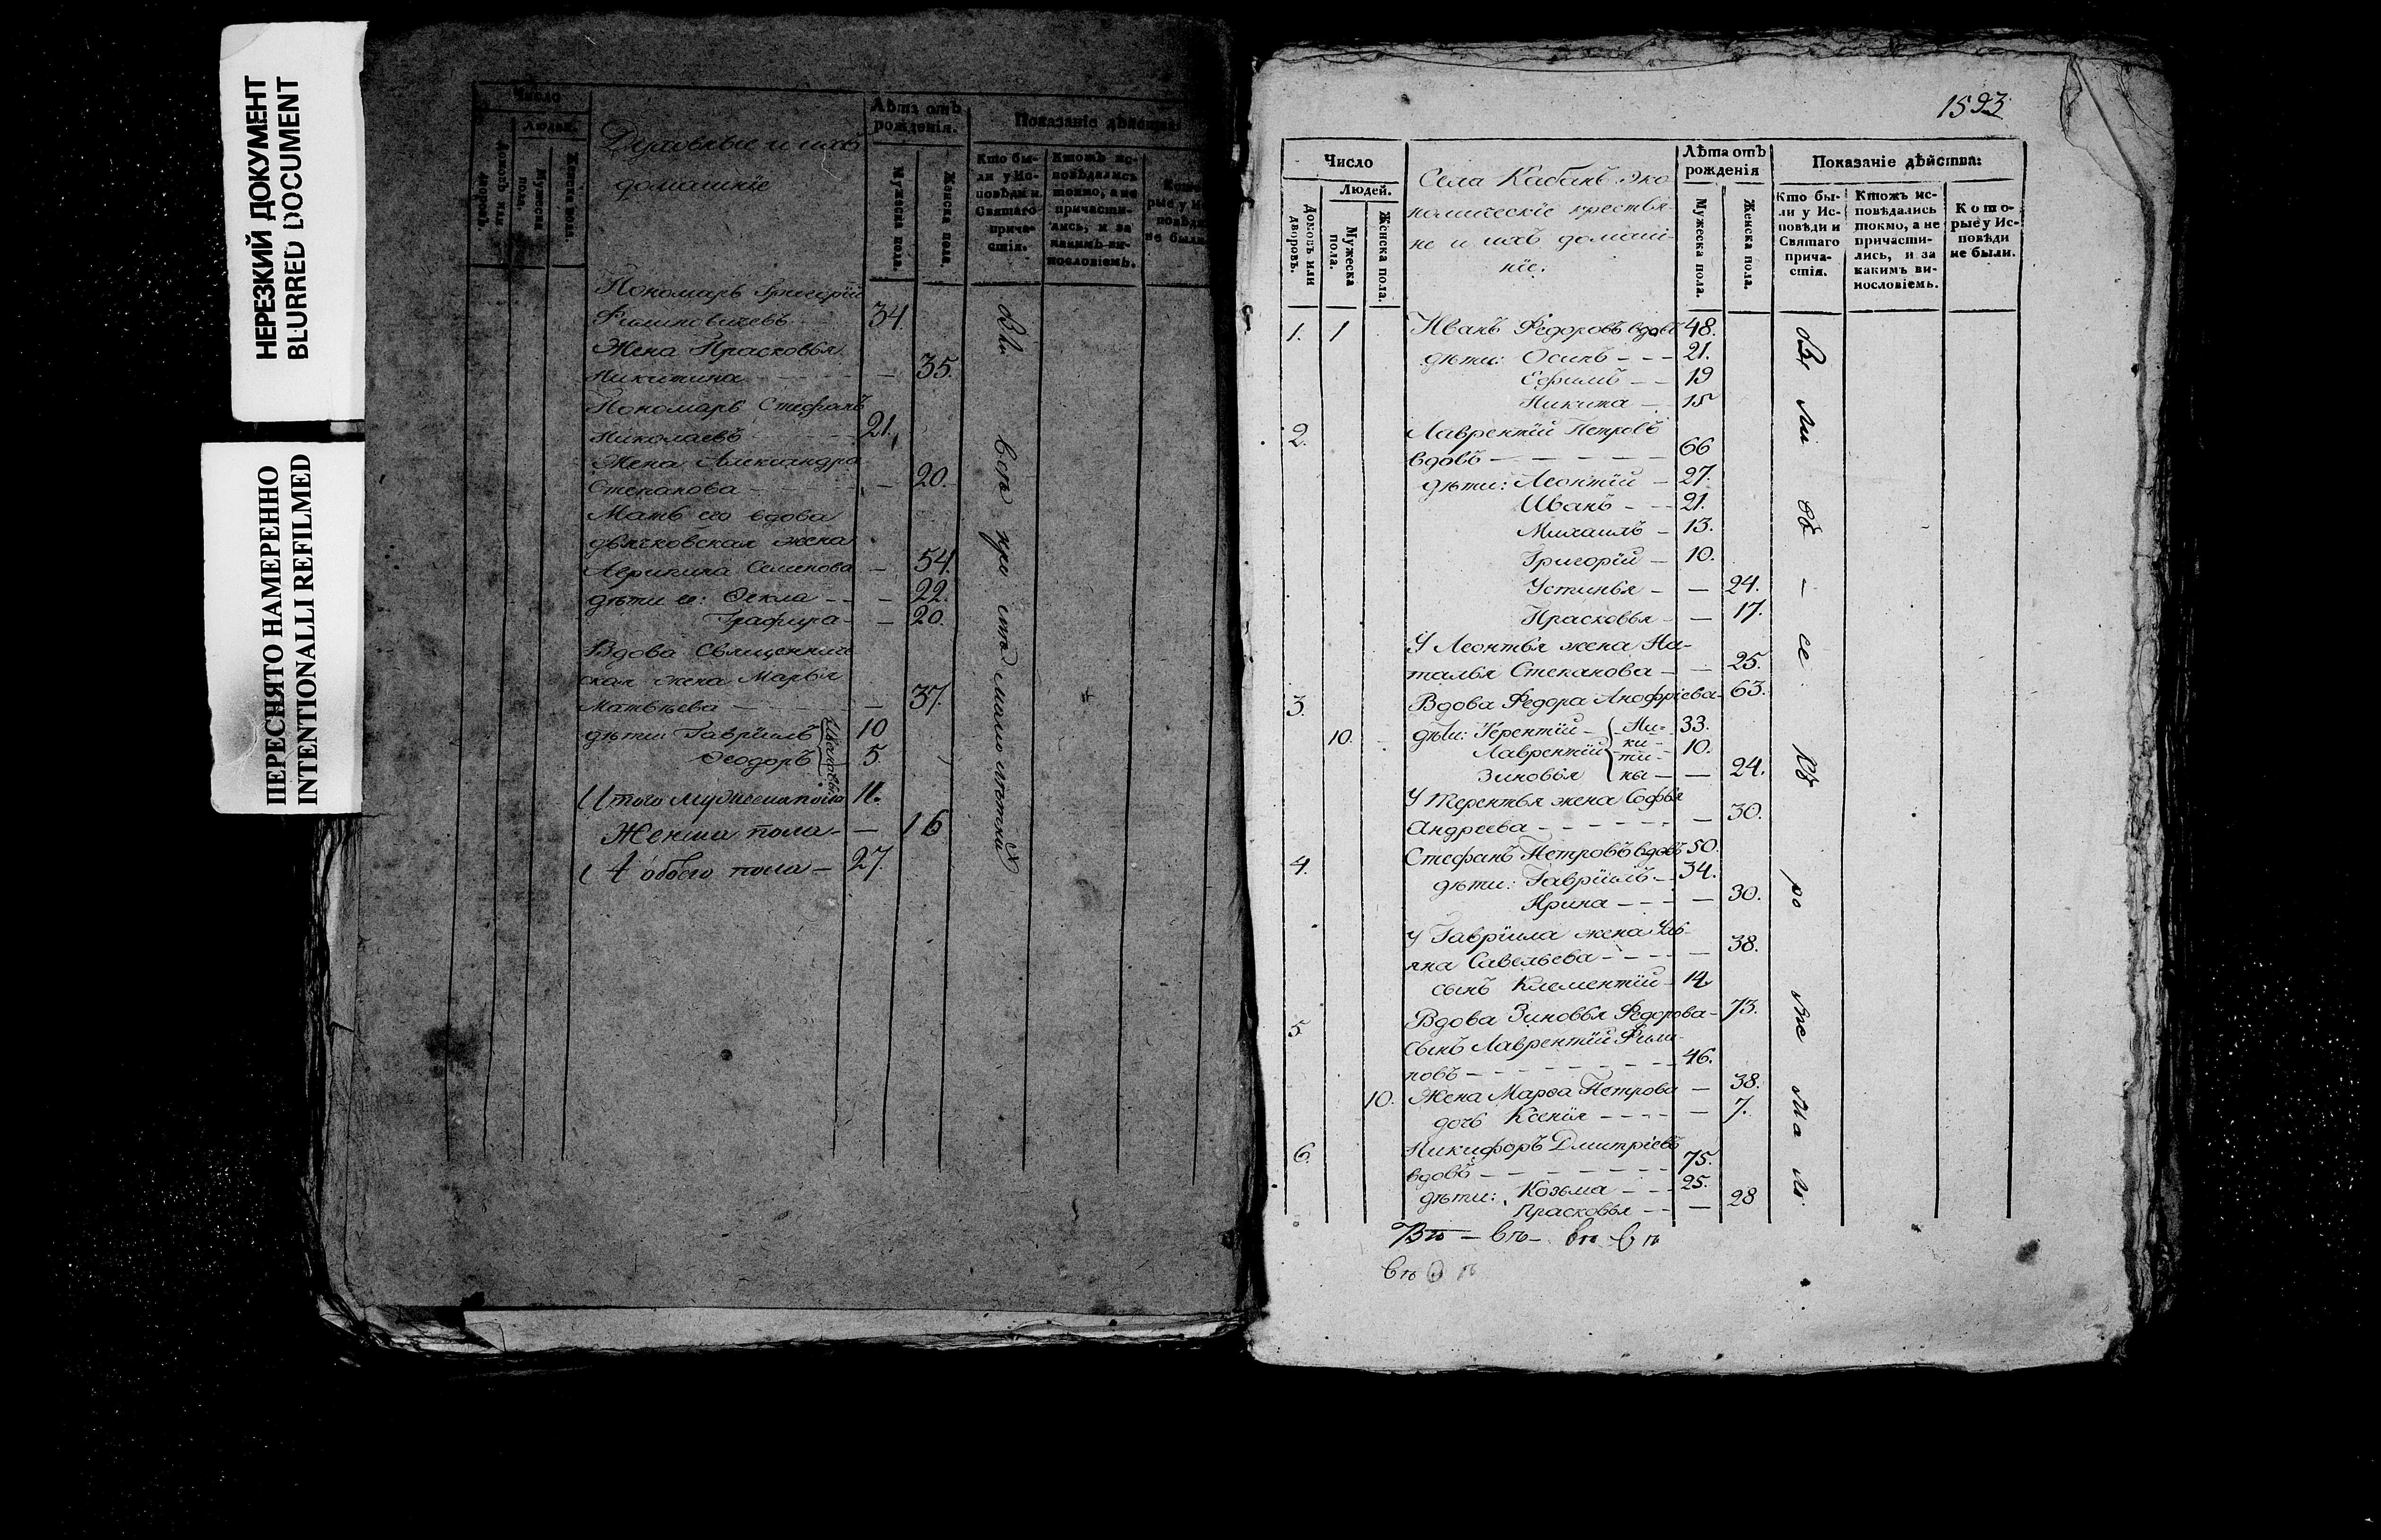 НЕРЕЗКИЙ ДОКУМЕНТ
BLURRED DOCUMENT
ПЕРЕСНЯТО НАМЕРЕННО
INTENTIONALLI REFILMED
Число
Людей.
Домовъ или дворовъ.
Мужеска пола.
Женска пола.
Духовные и ихъ
домашніе
Лѣта отъ рожденія.
Мужеска пола.
Женска пола.
Показаніе дѣйства:
Кто были у Исповѣди и Святаго причастія.
Ктожъ исповѣдались токмо, а не причастились, и за какимъ винословіемъ.
Пономарь Григорій
Филиповичевъ 34
Жена Прасковья
Никитина — 35.
Пономарь Стефанъ
Николаевъ 21.
Жена Александра
Степанова — 20.
Мать его вдова
дьячковская жена
Семенова — 54.
дѣти ее: Фекла — 22.
— 20.
Вдова Священниче
ская жена Марья
Матвѣева — 37.
дѣти: Гавріилъ 10
Феодоръ 5.
Ивановы
Итого мужеска пола 11.
Женска пола — — 16
А обоего пола — 27.
всѣ кро мѣ малолѣтных
1593
Число
Людей.
Домовъ или дворовъ.
Мужеска пола.
Женска пола.
Села Кабанъ эко
номическіе крестья-
не и ихъ домаш-
ніе.
Лѣта отъ рожденія
Мужеска пола.
Женска пола.
Показаніе дѣйства:
Кто были у Исповѣди и Святаго причастія.
Ктожъ исповѣдались токмо, а не причастились, и за какимъ винословіемъ.
Которые у Исповѣди не были.
1. 1 Иванъ Федоровъ вдовъ 48.
дѣти: Осипъ — — — 21.
Ефимъ — — 19
Никита — 15
2. Лаврентій Петровъ
вдовъ — — — — — 66
дѣти: Леонтій — 27.
Иванъ — — 21.
Михаилъ — 13.
Григорій — 10.
Устинья — — 24.
Прасковья — — 17.
У Леонтья жена На-
талья Степанова — — 25.
3. Вдова Федора Анофріева — 63.
10. дѣти: Терентій — 33.
Лаврентій 10.
Зиновья — — 24.
Ни-
ки-
ти-
ны
У Терентья жена Софья
Андреева — — — — — 30.
4. Стефанъ Петровъ вдовъ 50.
дѣти: Гавріилъ — 34.
Ирина — — — — 30.
У Гавріила жена Уль-
яна Савельева — — — — 38.
сынъ Клементій — 14
5. Вдова Зиновья Федорова — 73.
Сынъ Лаврентій Фили-
повъ — — — — — — 46.
10. Жена Марѳа Петрова — 38.
дочь Ксенія — — — — 7.
6. Никифоръ Дмитріевъ
вдовъ — — — — — — 75.
дѣти: Козьма — — — 25.
Прасковья — — — 28